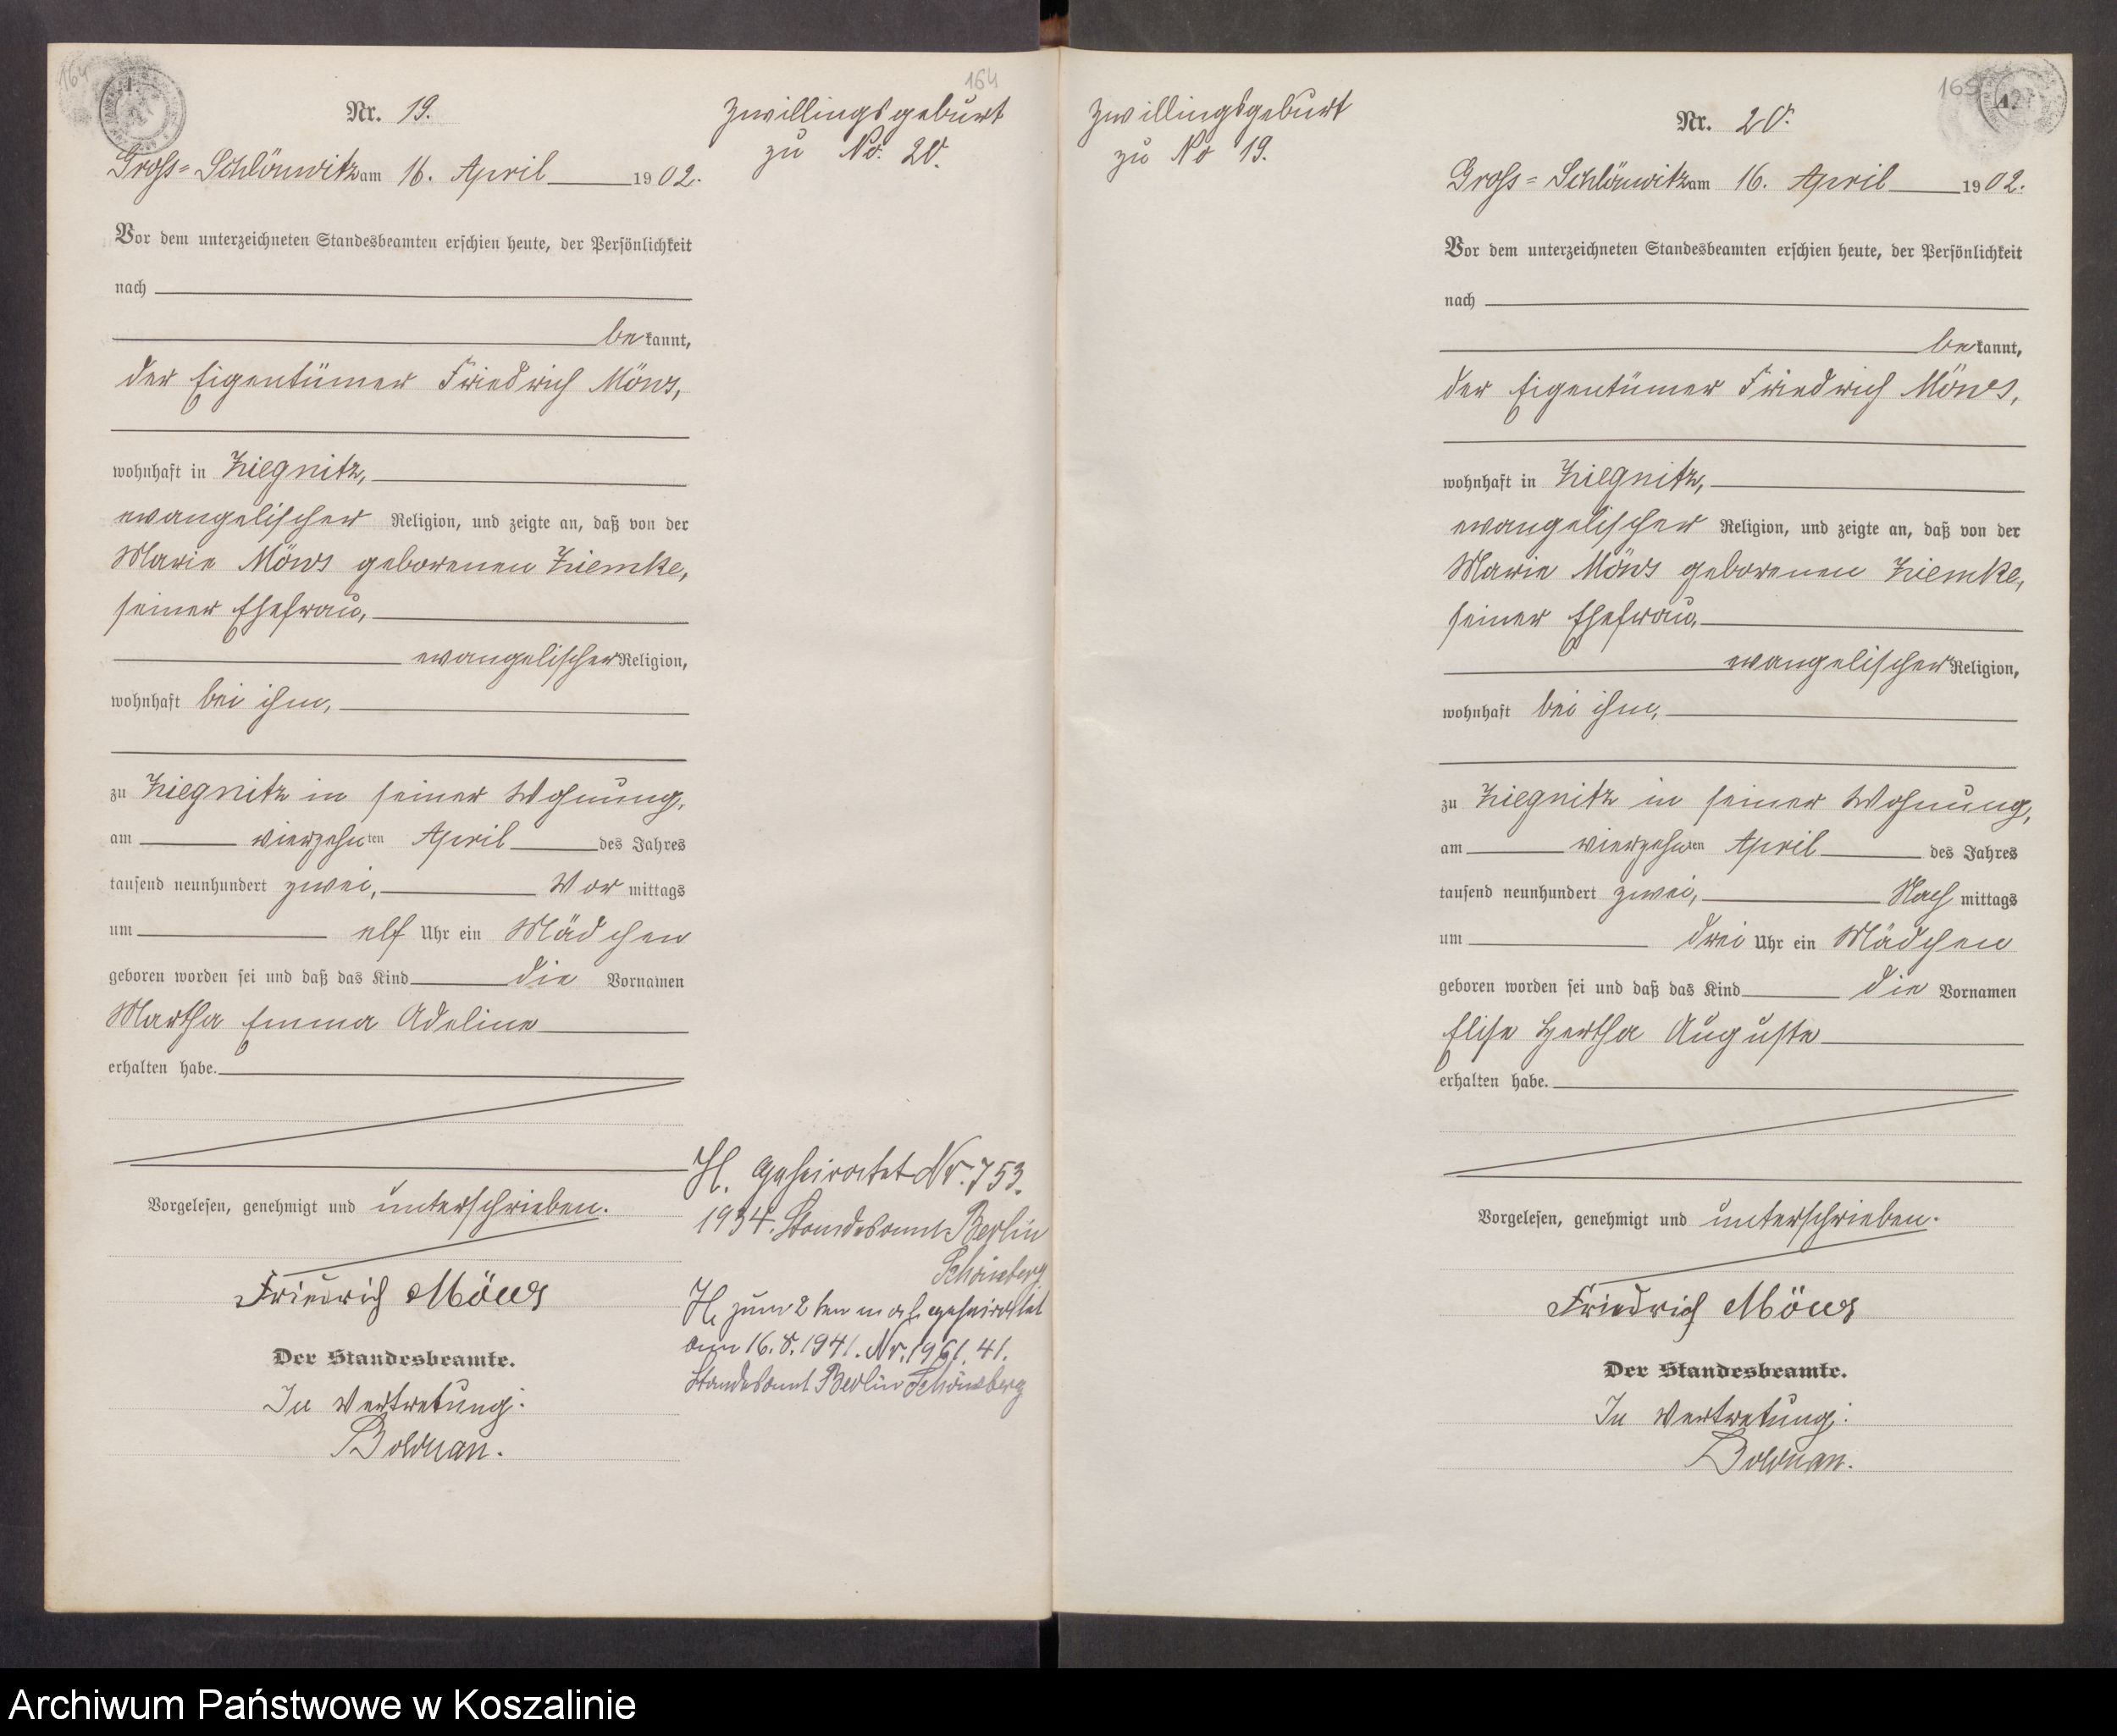 164
Nr. 19.
Gross=Schlönwitz am 16. April 1902.
Vor dem unterzeichneten Standesbeamten erschien heute, der Persönlichkeit
nach
bekannt,
der Eigentümer Friedrich Möws,
wohnhaft in Ziegnitz,
evangelischer Religion, und zeigte an, daß von der
Marie Möws geborenen Ziemke,
seiner Ehefrau,
evangelischer Religion,
wohnhaft bei ihm,
zu Ziegnitz in seiner Wohnung,
am vierzehnten April des Jahres
tausend neunhundert zwei, Vormittags
um elf Uhr ein Mädchen
geboren worden sei und daß das Kind die Vornamen
Martha Emma Adeline
erhalten habe.
Vorgelesen, genehmigt und unterschrieben.
Friedrich Möws
Der Standesbeamte.
In Vertretung:
Bolduan.
164
Zwillingsgeburt
zu No. 20.
H. geheiratet Nr. 753.
1934. Standesamt Berlin
Schöneberg
H. zum 2ten mal geheiratet
am 16.8.1941. Nr. 1961.41.
Standesamt Berlin Schöneberg
Zwillingsgeburt
zu No 19.
165
Nr. 20.
Gross=Schlönwitz am 16. April 1902.
Vor dem unterzeichneten Standesbeamten erschien heute, der Persönlichkeit
nach
bekannt,
der Eigentümer Friedrich Möws,
wohnhaft in Ziegnitz,
evangelischer Religion, und zeigte an, daß von der
Marie Möws geborenen Ziemke,
seiner Ehefrau,
evangelischer Religion,
wohnhaft bei ihm,
zu Ziegnitz in seiner Wohnung,
am vierzehnten April des Jahres
tausend neunhundert zwei, Nachmittags
um drei Uhr ein Mädchen
geboren worden sei und daß das Kind die Vornamen
Elise Hertha Auguste
erhalten habe.
Vorgelesen, genehmigt und unterschrieben.
Friedrich Möws
Der Standesbeamte.
In Vertretung:
Bolduan.
Archiwum Państwowe w Koszalinie